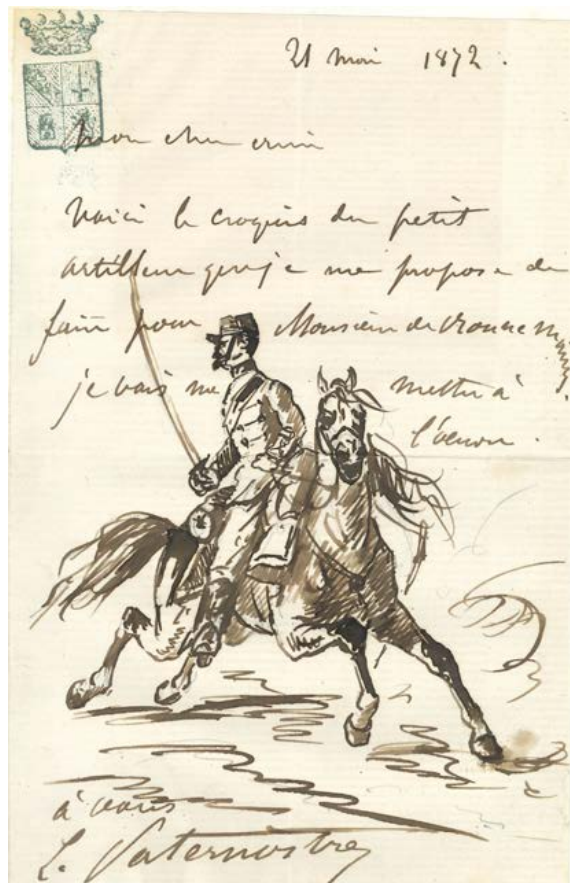 21 mai 1872.
mon cher ami
Voici le croquis du petit
artilleur que je me propose de
faire pour Monsieur de
je vais me mettre à
l'œuvre.
à vous
L. Paternostre